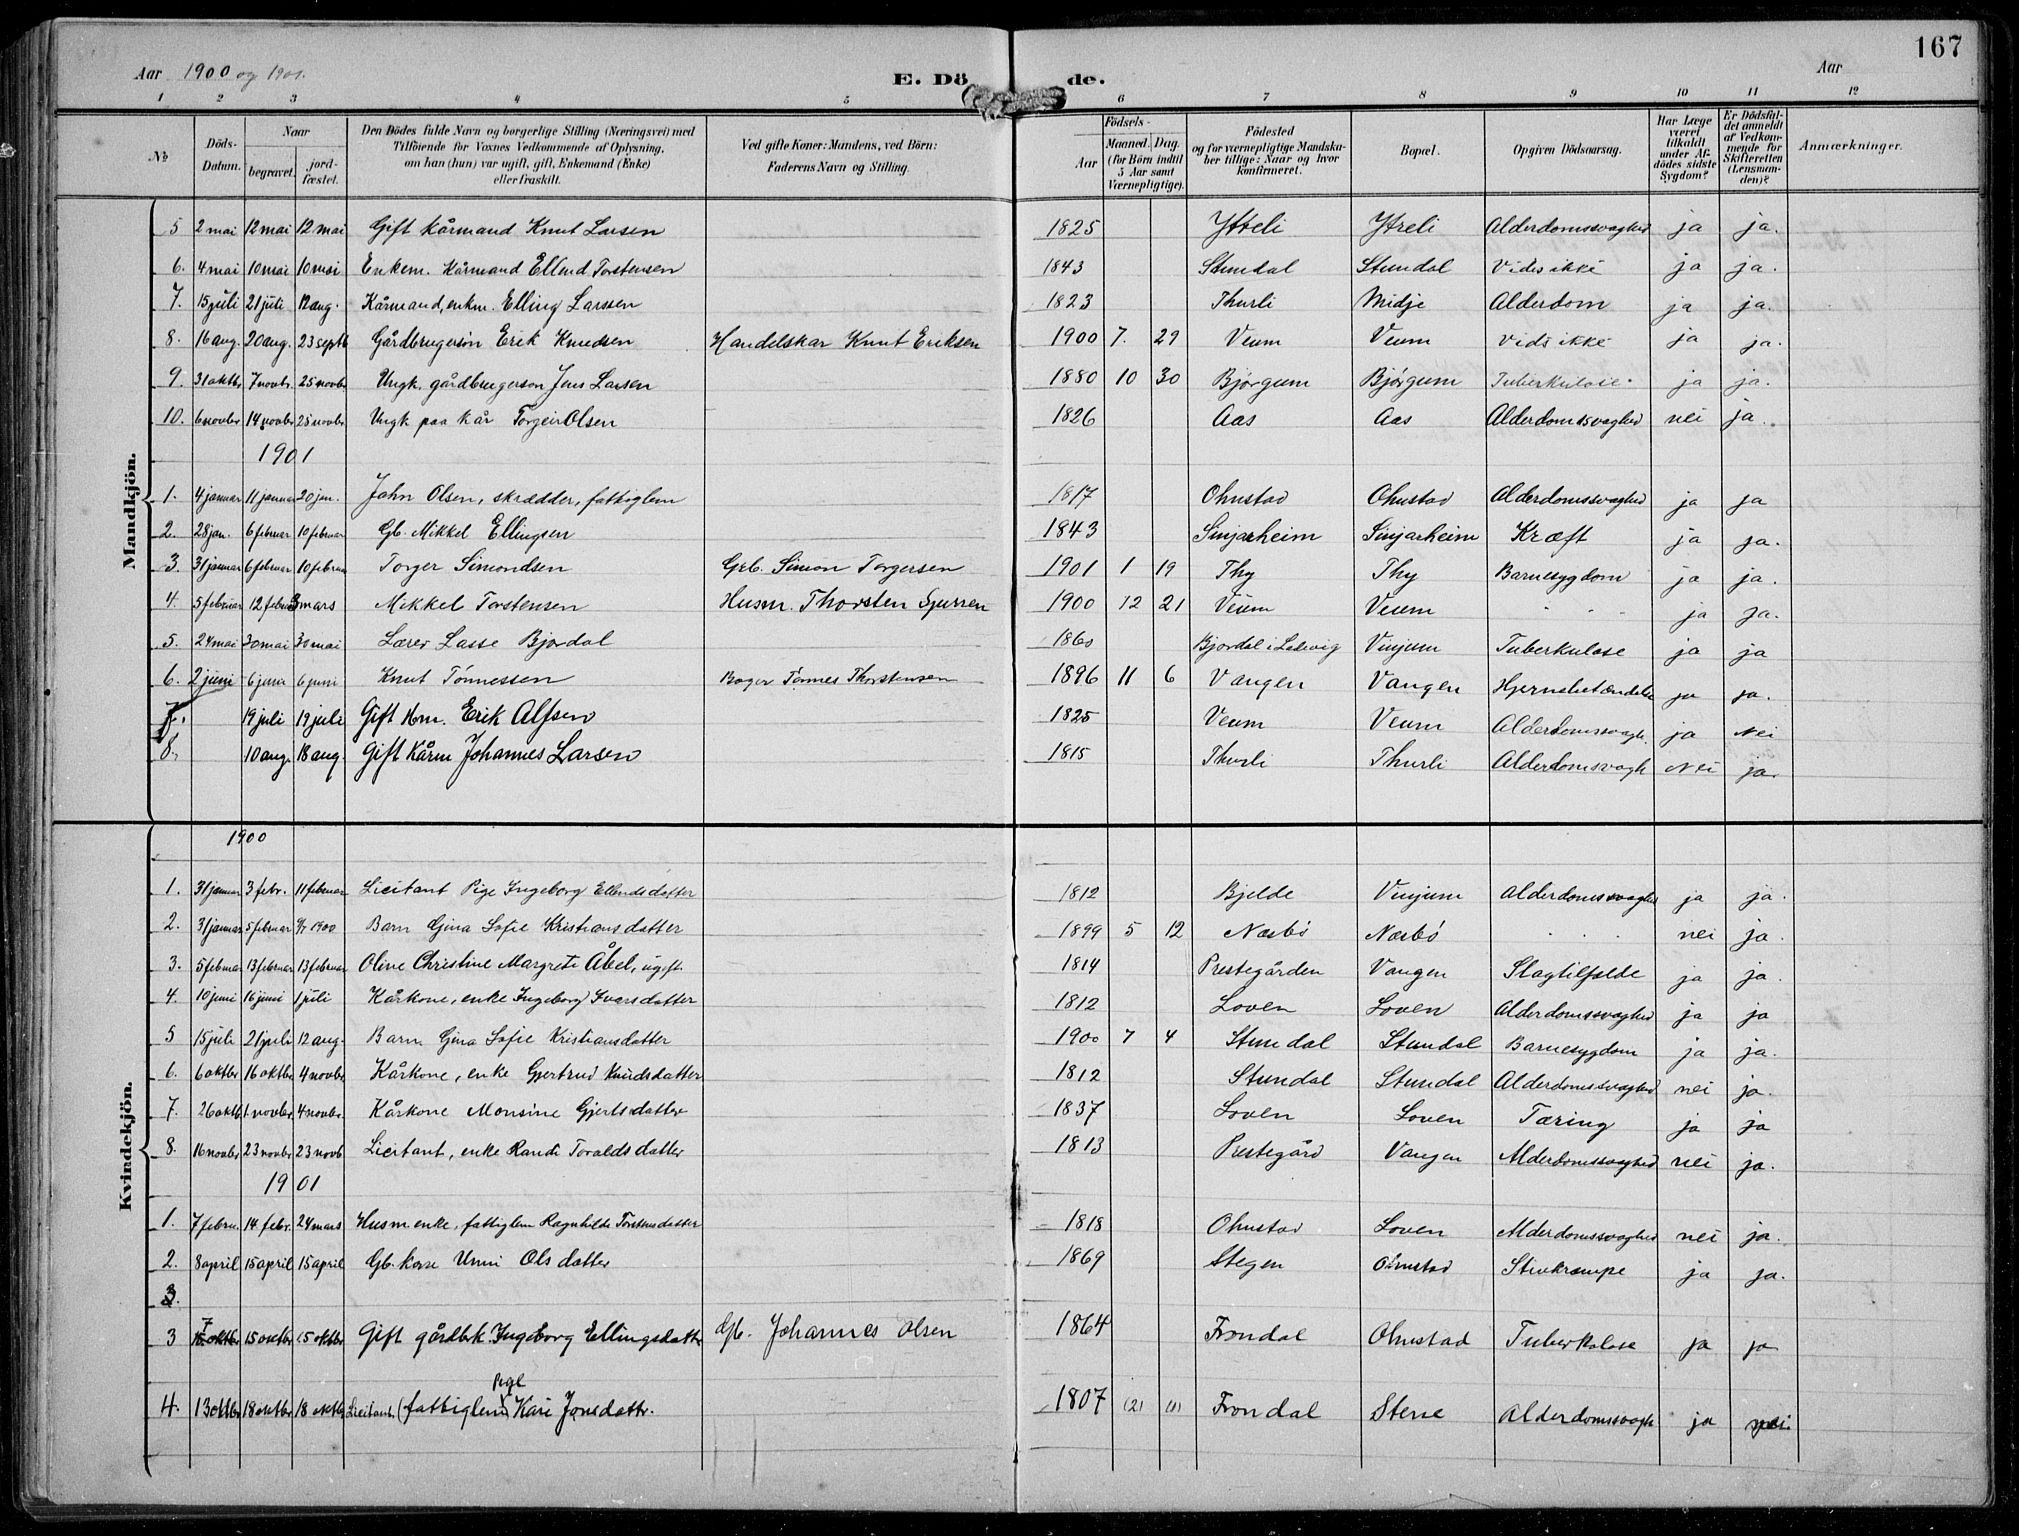 167
Aar 1900 og 1901. E. Dö de. Aar
1 2 3 4 5 6 7 8 9 10 11 12
№ Döds-Datum. Naar begravet. jordfæstet. Den Dödes fulde Navn og borgerlige Stilling (Næringsvei) med Tilföiende for Voxnes Vedkommende af Oplysning, om han (hun) var ugift, gift, Enkemand (Enke) eller fraskilt. Ved gifte Koner: Mandens, ved Börn: Faderens Navn og Stilling. Födsels- Aar Maaned. Dag. (for Börn indtil 5 Aar samt Værnepligtige). Födested og for værnepligtige Mandskaber tillige: Naar og hvor konfirmeret. Bopæl. Opgiven Dödsaarsag. Har Læge været tilkaldt under Afdödes sidste Sygdom? Er Dödsfaldet anmeldt af Vedkommende for Skifteretten (Lensmanden)? Anmærkninger.
Mandkjön.
5 2 mai 12 mai 12 mai Gift kårmand Knut Larsen 1825 Ytreli Ytreli Alderdomssvaghed ja ja.
6. 4 mai 10 mai 10 mai Enkem. Kårmand Ellend Torstensen 1843 Stundal Stundal Vides ikke ja ja.
7. 15 juli 21 juli 12 aug. Kårmand, enkm. Elling Larssen 1823 Thurli Midje Alderdom ja ja.
8. 16 aug. 20 aug. 23 septb Gårdbrugersön Erik Knudsen Handelskar Knut Eriksen 1900 7. 29 Veum Veum Vides ikke ja ja.
9. 31 oktbr 7 novbr. 25 novbr Ungk. gårdbrugerson Jens Larsen 1880 10 30 Bjørgum Bjørgum Tuberkulose. ja ja.
10. 6 novber 14 novbr 25 novbr. Ungk paa kår Torgeir Olsen 1826 Aas Aas Alderdomssvaghed nei ja.
1901
1. 4 januar 11 januar 20 jan. John Olsen, skrædder, fattiglem 1817 Ohnstad Ohnstad Alderdomssvaghed ja ja
2. 28 jan. 6 februar 10 februar Gb. Mikkel Ellingsen 1843 Sinjarheim Sinjarheim Kræft ja ja.
3. 31 januar 6 februar 10 februar Torger Simondsen Grb. Simon Torgersen 1901 1 19 Thy Thy Barnesygdom ja ja.
4. 5 februar 12 febru 3 mars Mikkel Torstensen Husm. Thorsten Sjursen 1900 12 21 Veum Veum . . . ja ja.
5. 24 mai 30 mai 30 mai Lærer Lasse Bjordal 1860 Bjordal i Ladvig Vinjum Tuberkulose ja ja
6. 2 juni 6 juni 6 juni Knut Tönnessen Bager Tönnes Thorstensen 1896 11 6 Vangen Vangen Hjernebetændelse ja ja.
7. 19 juli 19 juli Gift Hm. Erik Alfsen 1825 Veum Veum Alderdomssvagh. ja Nei
8. 10 aug. 18 aug. Gift Kårm Johannes Larsen 1815 Thurli Thurli Alderdomsvagh Nei ja
Kvindekjön.
1900
1. 31 januar 3 febr. 11 februar Licitant Pige Ingeborg Ellendsdatter 1812 Bjelde Vinjum Alderdomssvaghed ja ja.
2. 31 januar 5 februar 9/7 1900 Barn Gina Sofie Kristiansdatter 1899 5 12 Næsbö Næsbö . . . nei ja.
3. 5 februar 13 februar 13 februar Oline Christine Margrete Åbel, ugift. 1814 Prestegården Vangen Slagtilfælde ja ja.
4. 10 juni 16 juni 1 juli Kårkone, enke Ingeborg Ivarsdatter 1812 Loven Loven Alderdomssvaghed ja ja
5 15 juli 21 juli 12 aug. Barn Gina Sofie Kristiansdatter 1900 7 4 Stundal Stundal Barnesygdom ja ja.
6. 6 oktbr 16 oktbr 4 novbr. Kårkone, enke Gjertrud Knudsdatter 1812 Stundal Stundal Alderdomssvaghed nei ja.
7. 26 oktb 1 novbr 4 novbr. Kårkone Monsine Gjertsdatter 1837 Loven Loven Tæring ja ja
8. 16 novbr 23 novbr 23 novb Licitant, enke Randi Toraldsdatter 1813 Prestegård Vangen Alderdomssvaghed nei ja.
1901
1. 7 febru. 14 febr. 24 mars Husm enke, fattiglem Ragnhilde Torstensdatter 1818 Ohnstad Loven Alderdomssvaghed nei ja.
2. 8 april 15 april 15 april Gb. kone Unni Olsdatter 1869 Stegen Ohnstad Stivkrampe ja ja.
3.
3 7 oktbr 15 oktbr 15 oktbr Gift gårdbk. Ingeborg Ellingsdatter Gb. Johannes Olsen 1864 Frondal Ohnstad Tuberkolose ja ja
Pige
4. 13 oktbr 18 oktbr 18 oktbr Licitant (fattiglem) Kari Jonsdattr. 1807 (2) (1) Frondal Stene Alderdomssvagh ja nei